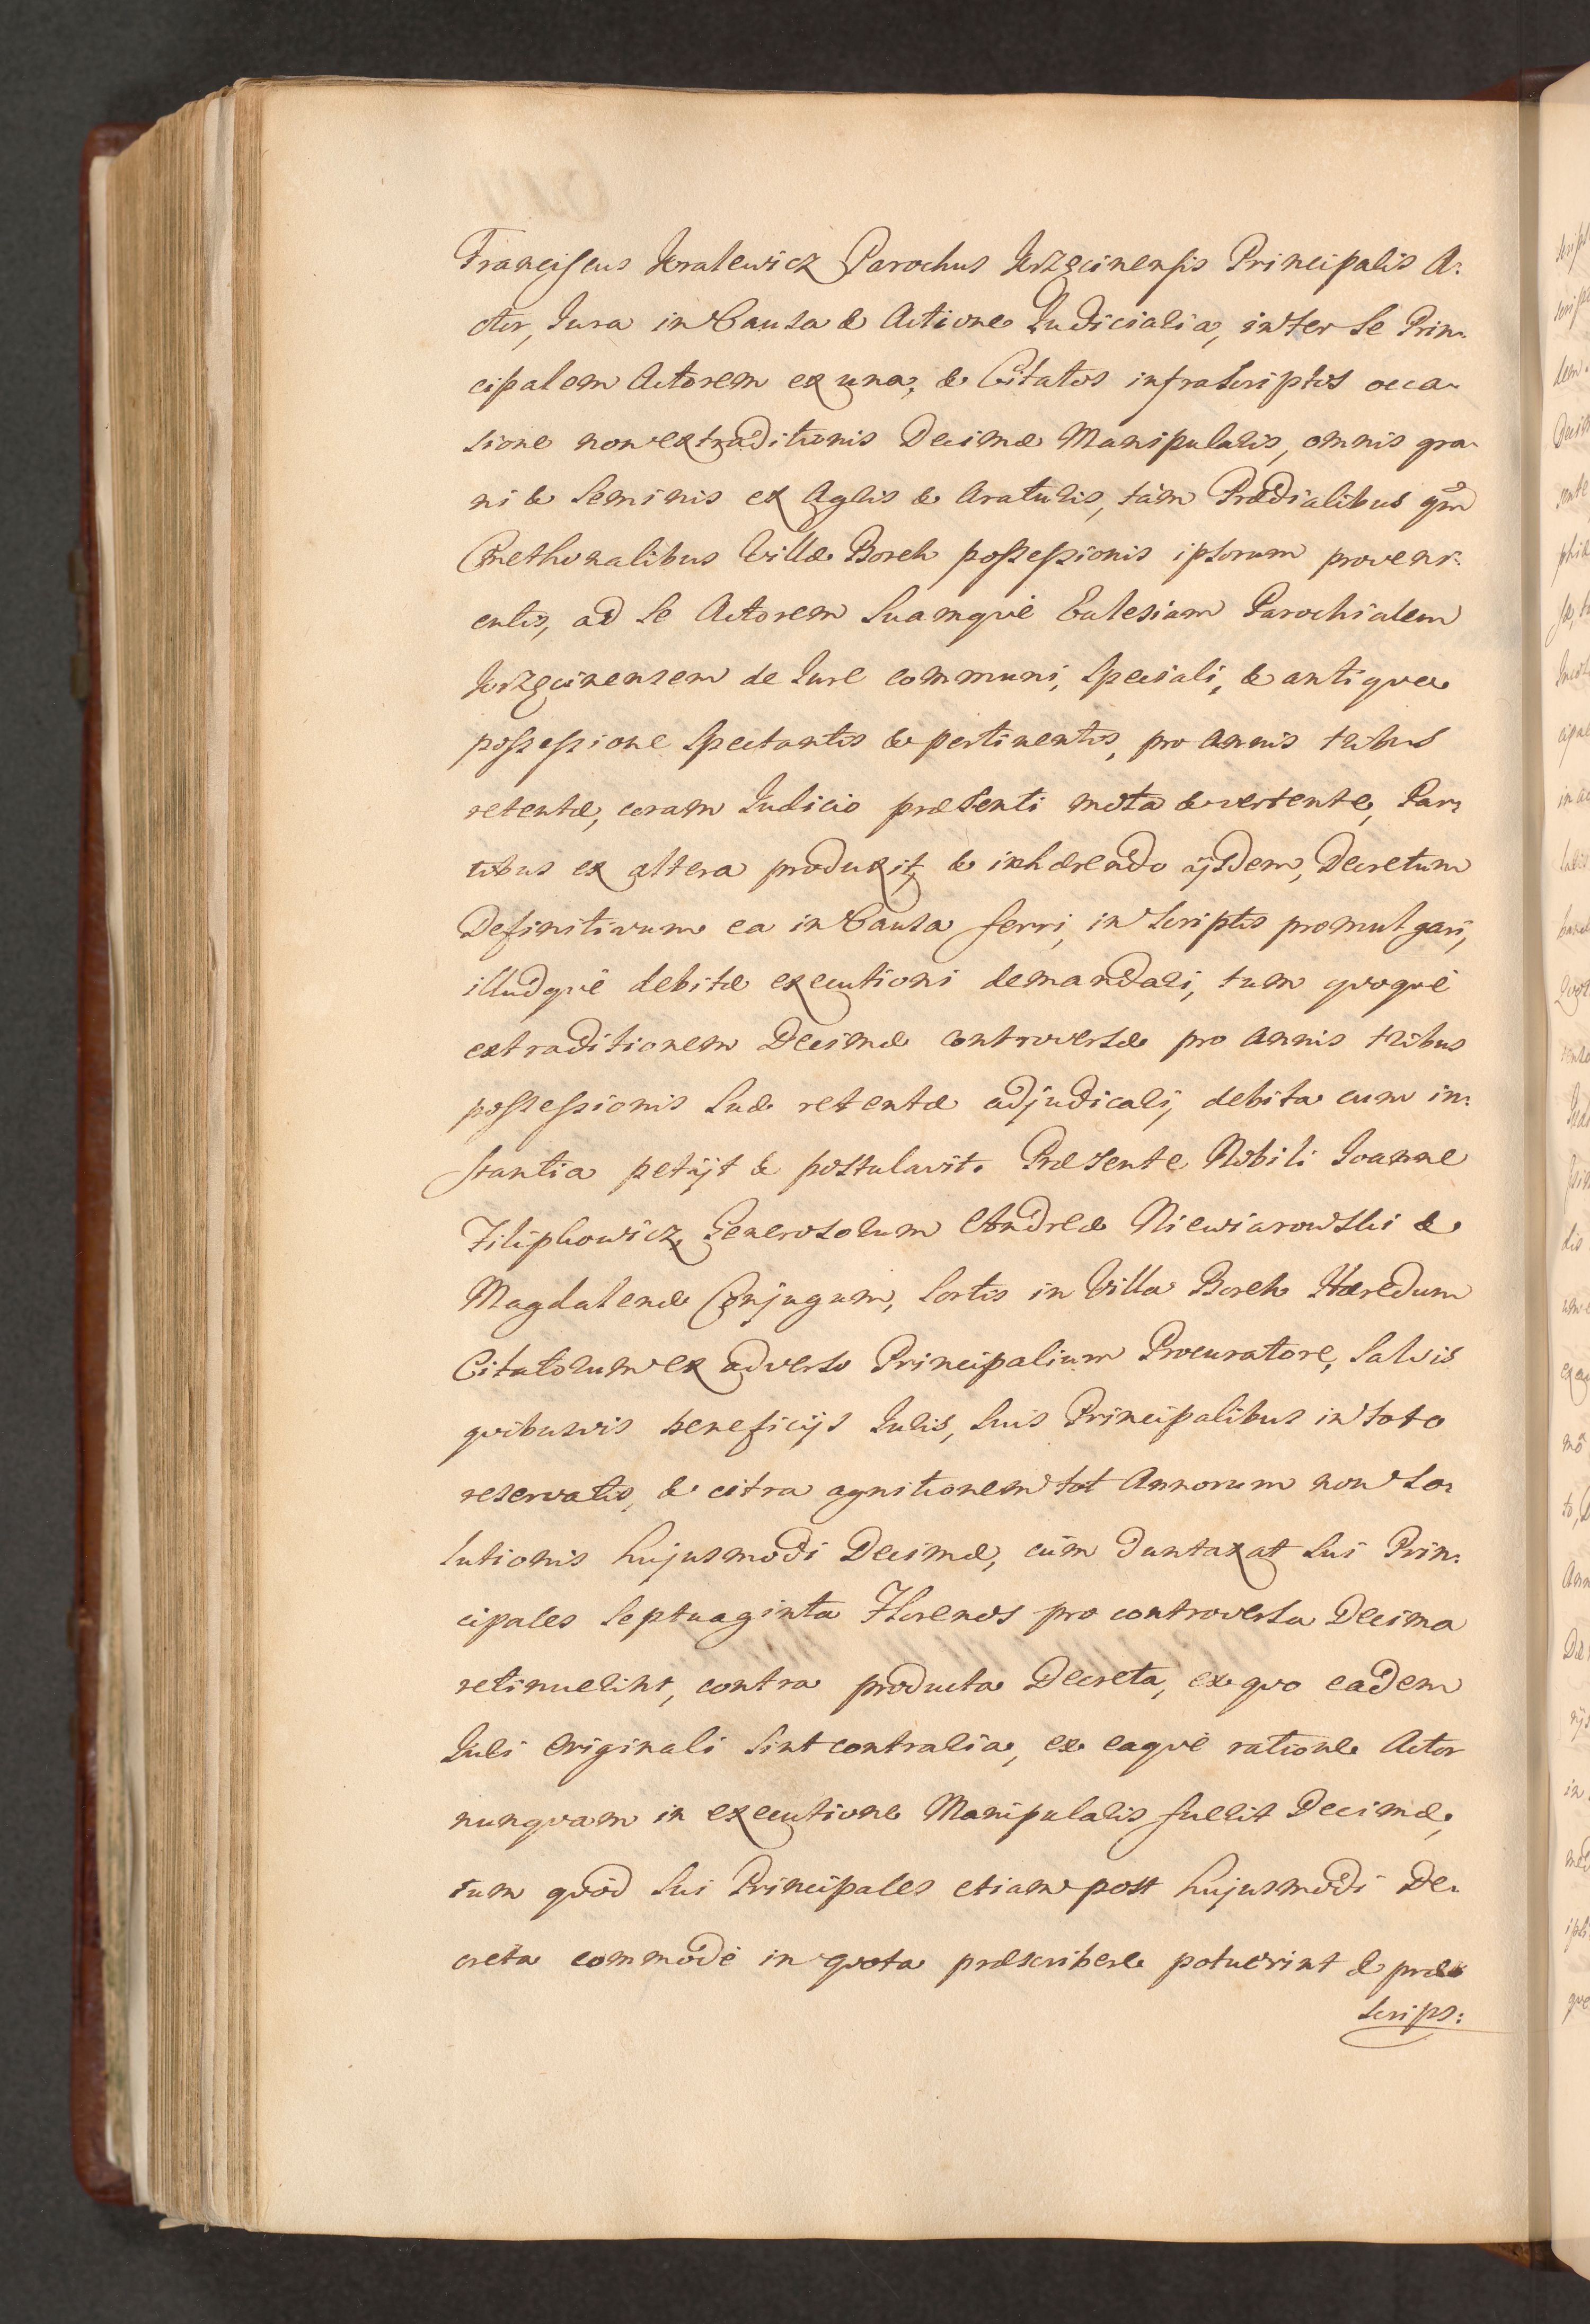 Franciscus Kralewicz Parochus Krzęcinensis Principalis A:
ctor, Jura in Causa & Actione Judicialia, inter se Prin:
cipalem Actorem ex una, & Citatos infrascriptos occa-
sione non extraditionis Decimæ Manipularis, omnis gra-
ni & Seminis ex Agris & Araturis, tàm Prædialibus qm̃
Cmethonalibus Villæ Borek possessionis ipsorum proveni:
entis, ad se Actorem suamquè Ecclesiam Parochialem
Krzęcinensem de Jure communi, speciali, & antiqua
possessione spectantis & pertinentis, pro annis tribus
retentæ, coram Judicio præsenti mota & vertente, Par:
tibus ex altera produxit, & inhærendo ijsdem, Decretum
Definitivum ea in Causa ferri, in Scriptis promulgari,
illudquè debitæ executioni demandari, tum quoquè
extraditionem Decimæ controversæ pro annis tribus
possessionis suæ retentæ adjudicari, debita cum in:
stantia petijt & postulavit. Præsente Nobili Joanne
Filipkowicz, Generosorum Andreæ Niewiarowski &
Magdalenæ Conjugum, Sortis in Villa Borek Hæredum
Citatorum ex adverso Principalium Procuratore, Salvis
quibusvis beneficijs Juris, suis Principalibus in toto
reservatis, & citra agnitionem tot Annorum non so:
lutionis hujusmodi Decimæ, cùm duntaxat sui Prin:
cipales Septuaginta Florenos pro controversa Decima
retinuerint, contra producta Decreta, ex quo eadem
Juri Originali sint contraria, ex eaquè ratione Actor
nunquam in executione Manipularis fuerit Decimæ,
tum quòd sui Principales etiam post hujusmodi De-
creta commodè in quota præscribere potuerint & præ
scrips: